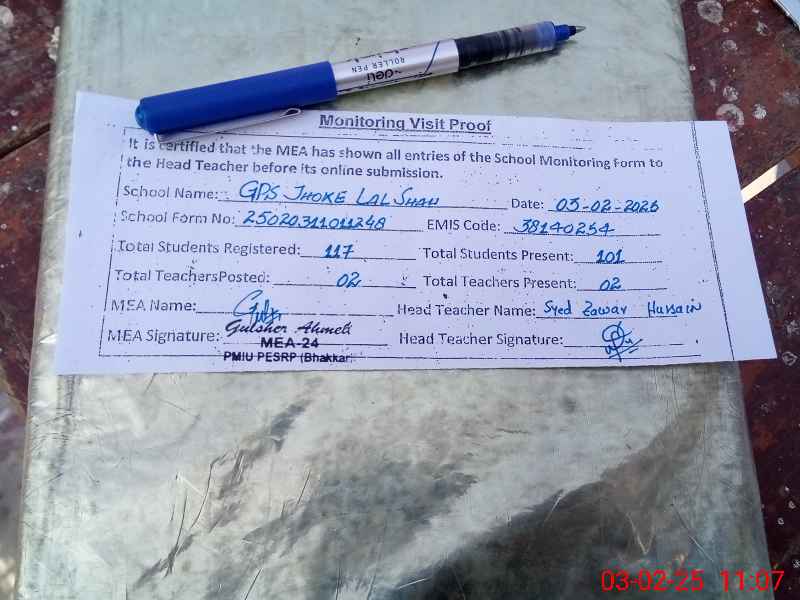 deli
ROLLER PEN
Monitoring Visit Proof
It is certified that the MEA has shown all entries of the School Monitoring Form to
the Head Teacher before its online submission.
School Name: GPS JHOKE LAL SHAH Date: 03-02-2025
School Form No: 25020311011248 EMIS Code: 38140254
Total Students Registered: 117 Total Students Present: 101
Total TeachersPosted: 02 Total Teachers Present: 02
MEA Name: Head Teacher Name: Syed Zawar Hussain
MEA Signature: Gulsher Ahmed Head Teacher Signature:
MEA-24
PMIU PESRP (Bhakkar)
03-02-25 11:07